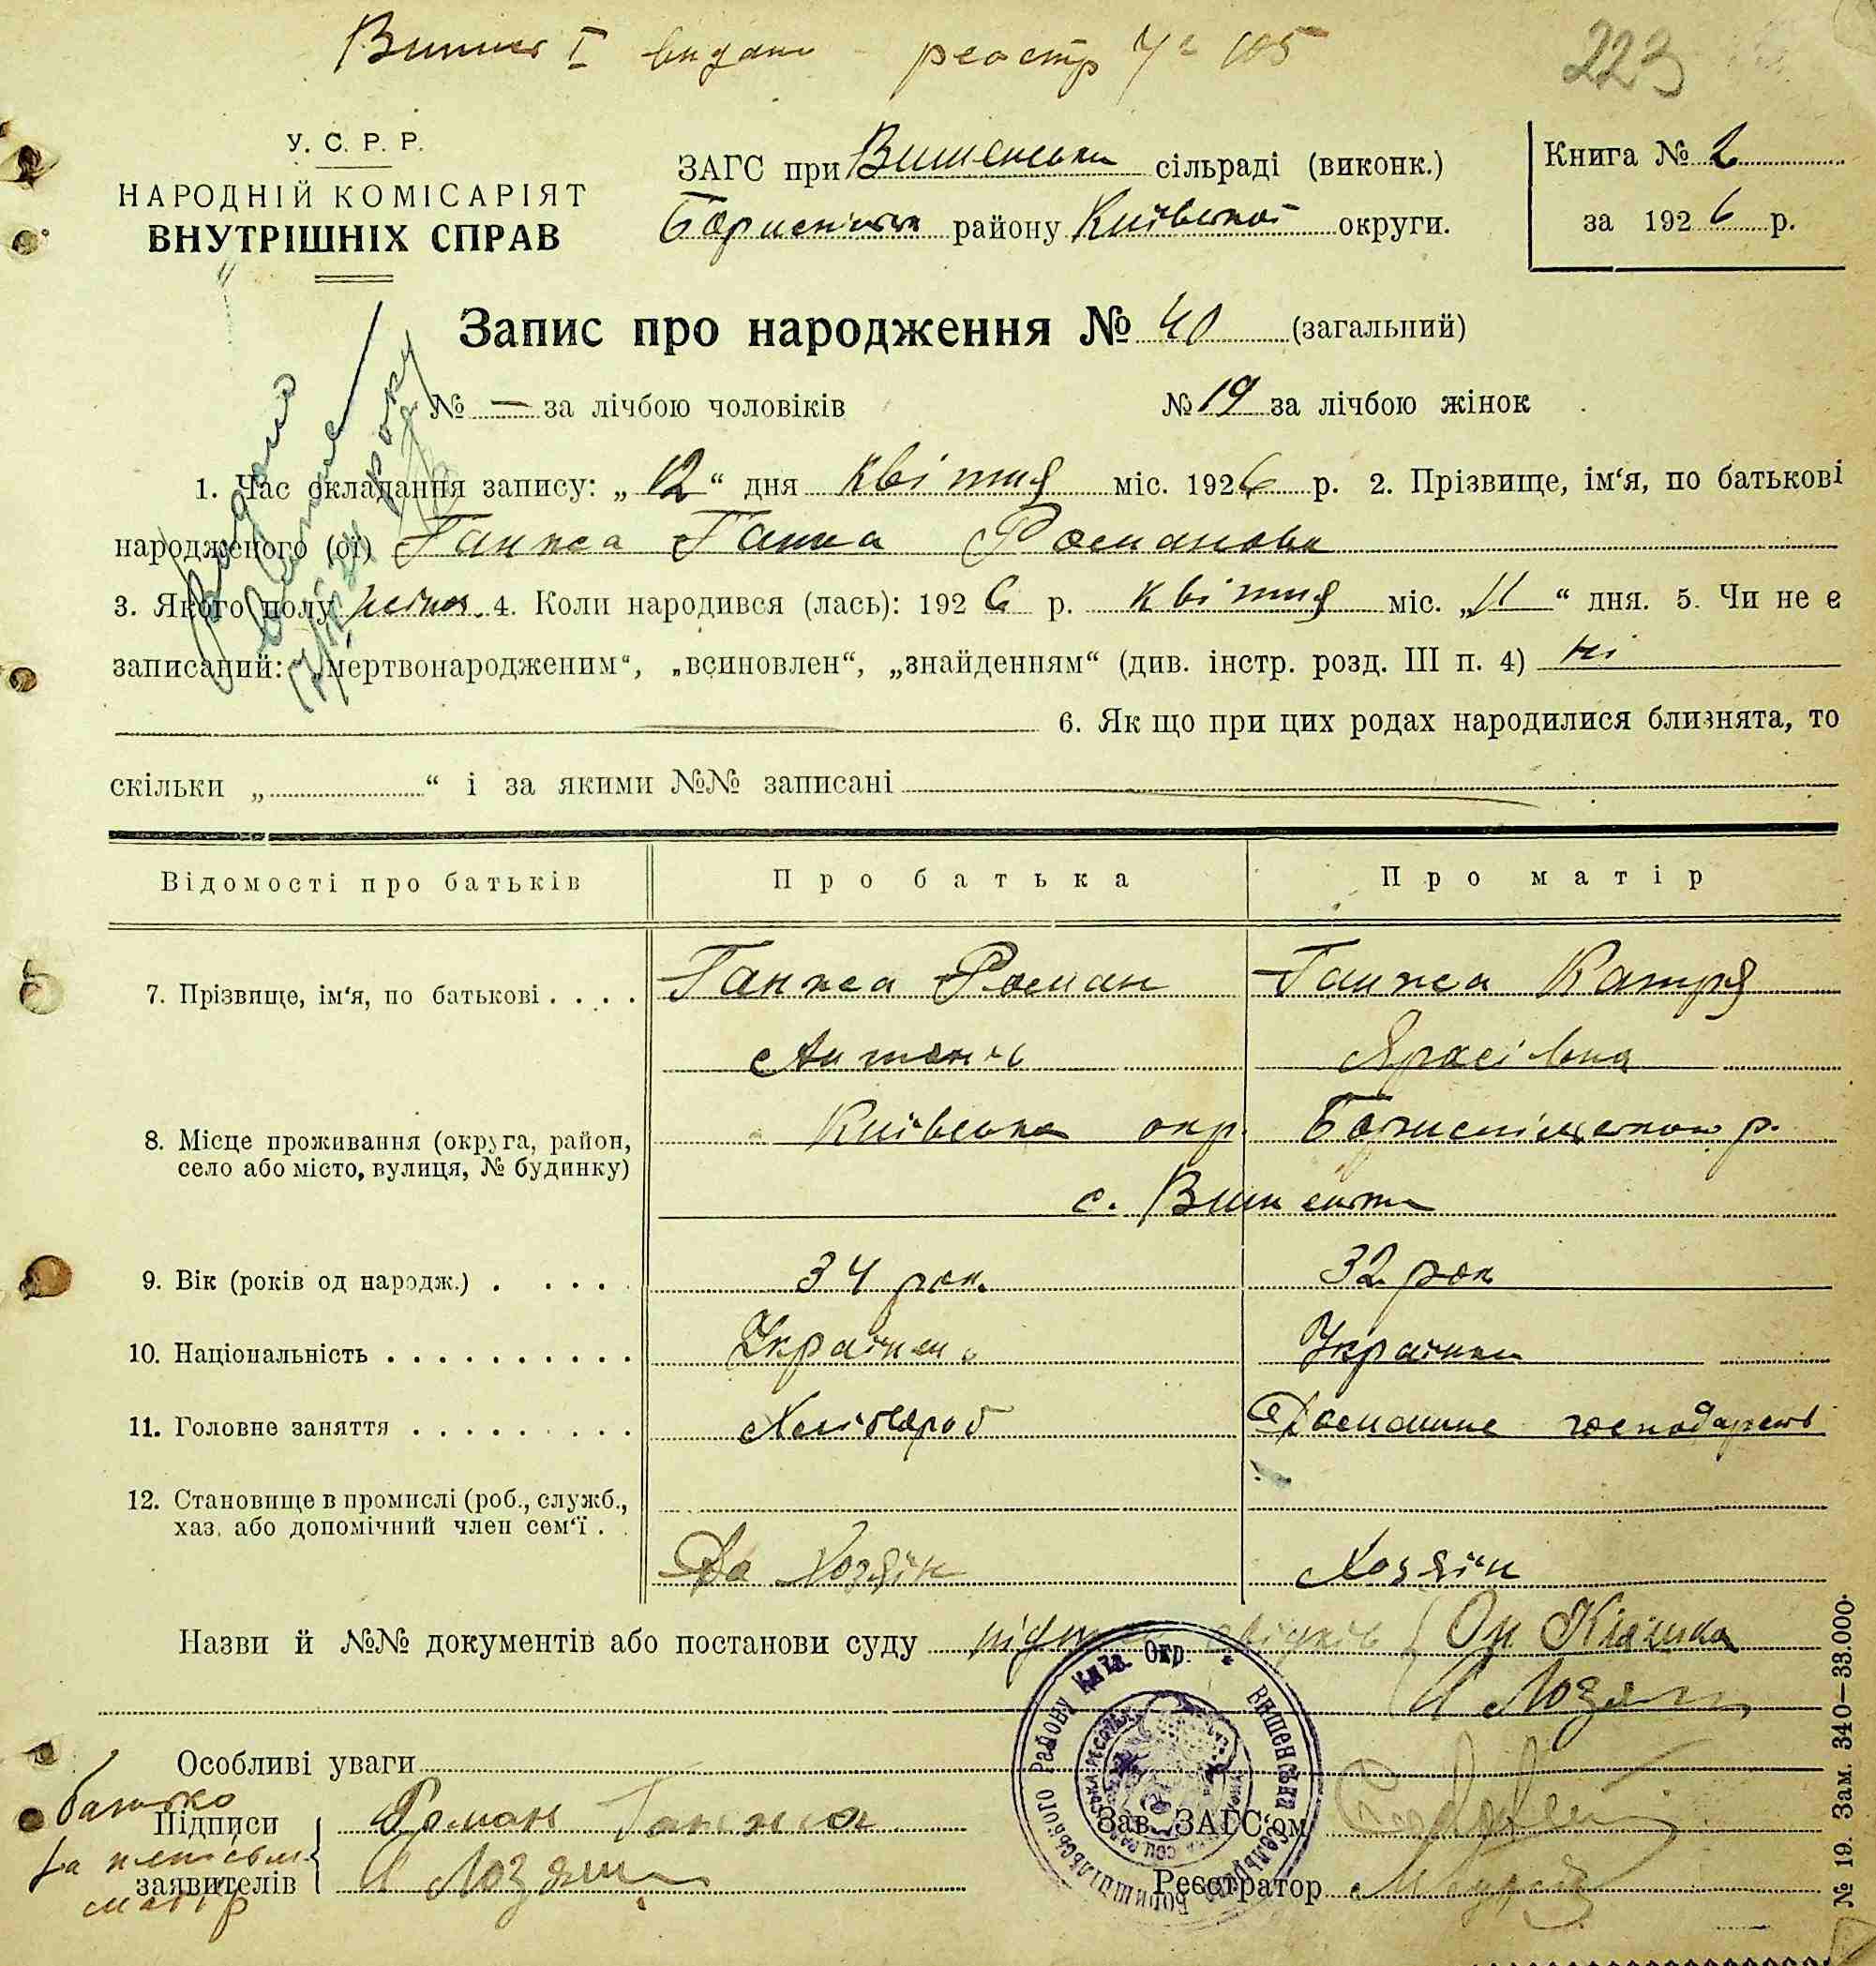 видано реєстр № 105
223
У. С. Р. Р.
НАРОДНІЙ КОМІСАРІЯТ
ВНУТРІШНІХ СПРАВ
ЗАГС при Вишеньки сільраді (виконк.)
району Київської округи.
Книга № 2
за 1926 р.
Запис про народження № 40 (загальний)
№ — за лічбою чоловіків № 19 за лічбою жінок
1. Час окладання запису: „12“ дня квітня міс. 1926 р. 2. Прізвище, ім‘я, по батькові
народженого (ої) Ганжа Ганна Романовн
3. Якого полу жіноч. 4. Коли народився (лась): 1926 р. квітня міс. „11“ дня. 5. Чи не є
записаний: „мертвонародженим“, „всиновлен“, „знайденням“ (див. інстр. розд. III п. 4) ні
6. Як що при цих родах народилися близнята, то
скільки „ “ і за якими №№ записані
Відомості про батьків Про батька Про матір
7. Прізвище, ім‘я, по батькові . . . . Ганжа Роман Ганжа Катря
8. Місце проживання (округа, район, Київська окр. р.
село або місто, вулиця, № будинку)
с. Вишеньки
9. Вік (років од народж.) . . . . . 34 рок. 32 рок
10. Національність . . . . . . . . . . . Українец. Українка
11. Головне заняття . . . . . . . . . Хлібороб Домашнє господарств
12. Становище в промислі (роб., служб.,
хаз. або допомічний член сем‘ї . .
Хозяїн Хозяїн
Назви й №№ документів або постанови суду свідків
И Лозян
Особливі уваги
батько
Підписи Роман Ганжа
за неписьм.
заявителів
матір
Зав. ЗАГС‘ом
Реєстратор
Бориспільського Району Київ. Окр. * Вишенська сельрада
№ 19. Зам. 340—33.000.